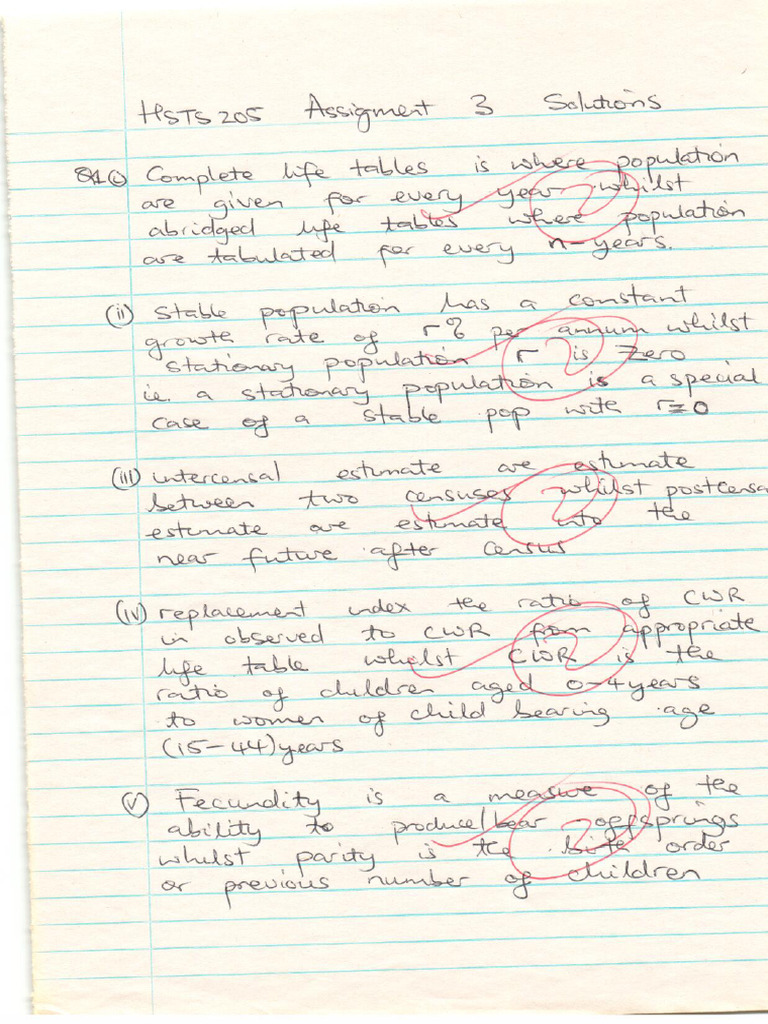 HSTS 205 Assigment 3 Solutions
Q1 (i) Complete life tables is where population
are given for every year whilst
abridged life tables where population
are tabulated for every n-years.
(ii) Stable population has a constant
growth rate of r% per annum whilst
stationary population r is zero
i.e. a stationary population is a special
case of a stable pop with r=0
(iii) intercensal estimate are estimate
between two censuses whilst postcensa
estimate are estimate into the
near future after census
(iv) replacement index the ratio of CWR
in observed to CWR from appropriate
life table whilst CWR is the
ratio of children aged 0-4 years
to women of child bearing age
(15-44) years
(v) Fecundity is a measure of the
ability to produce/bear offsprings
whilst parity is the birth order
or previous number of children
2
2
2
2
2